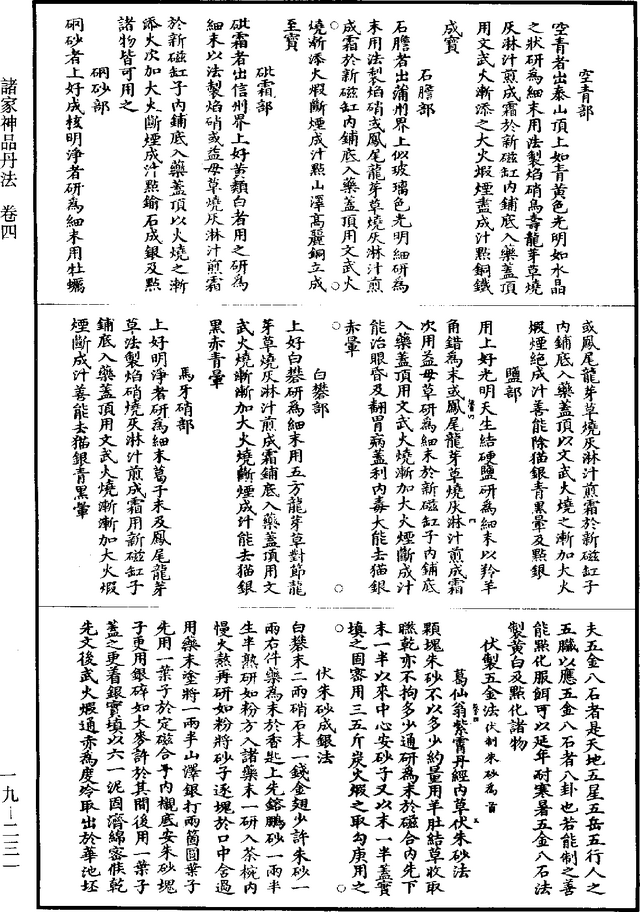 空青部
空青者出泰山頂上如青黃色光明如水晶
之狀研為細末用法製焰硝烏壽龍芽草燒
灰淋汁煎成霜於新磁缸內鋪底入藥蓋頂
用文武火漸添之大火煅煙盡成汁點銅鐵
成寶
石膽部
石膽者出蒲州界上似玻瓈色光明細研為
末用法製焰硝或鳳尾龍芽草燒灰淋汁煎
成霜於新磁缸內鋪底入藥蓋頂用文武火
燒漸添火煅斷煙成汁點山澤高麗銅立成
至寶
砒霜部
砒霜者出信州界上好黃顆白者用之研為
細末以法製焰硝或益母草燒灰淋汁煎霜
於新磁缸子內鋪底入藥蓋頂以火燒之漸
添火次加大火斷煙成汁點鍮石成銀及點
諸物皆可用之
硇砂部
硇砂者上好成核明淨者研為細末用牡蠣
或鳳尾龍芽草燒灰淋汁煎霜於新磁缸子
內鋪底入藥蓋頂以文武火燒之漸加大火
煅煙絕成汁善能除猫銀青黑暈及點銀
鹽部
用上好光明天生結硬鹽研為細末以羚羊
角錯為末或鳳尾龍芽草燒灰淋汁煎成霜
次用益母草研為細末於新磁缸子內鋪底
入藥蓋頂用文武火燒漸加大火煙斷成汁
能治眼昏及翻胃病蓋利內毒大能去猫銀
赤暈
白礬部
上好白礬研為細末用五方龍芽草對節龍
芽草燒灰淋汁煎成霜鋪底入藥蓋頂用文
武火燒漸漸加大火燒斷煙成汁能去猫銀
黑赤青暈
馬牙硝部
上好明淨者研為細末葛子末及鳳尾龍芽
草法製焰硝燒灰淋汁煎成霜用新磁缸子
鋪底入藥蓋頂用文武火燒漸漸加大火煅
煙斷成汁善能去猫銀青黑暈
夫五金八石者是天地五星五岳五行人之
五臟以應五金八石者八卦也若能制之善
能點化服餌可以延年耐寒暑五金八石法
製黃白及點化諸物
伏製五金法伏制朱砂為首
葛仙翁紫霄丹經內草伏朱砂法
顆塊朱砂不以多少約量用羊肚結草收取
瞧乾亦不拘多少通研為末於磁合內先下
末一半以來中心安砂子又以末一半蓋實
填之固密用三五斤炭火煅之取勾庚用之
伏朱砂成銀法
白礬末二兩硝石末一錢金翅少許朱砂一
兩右件藥為末於香匙上先鎔鵬砂一兩半
生半熟研如粉方入諸藥末一研入茶椀內
慢火熬再研如粉將砂子逐塊於口中含過
用藥末塗將一兩半山澤銀打兩箇圓葉子
先用一葉子於定磁合子內襯底安朱砂塊
子更用銀碎如大麥許於其間後用一葉子
蓋之更着銀實填以六一泥固濟綿密候乾
先文後武火煅通赤為度冷取出於華池坯
諸家神品丹法 卷四
一九-二三一